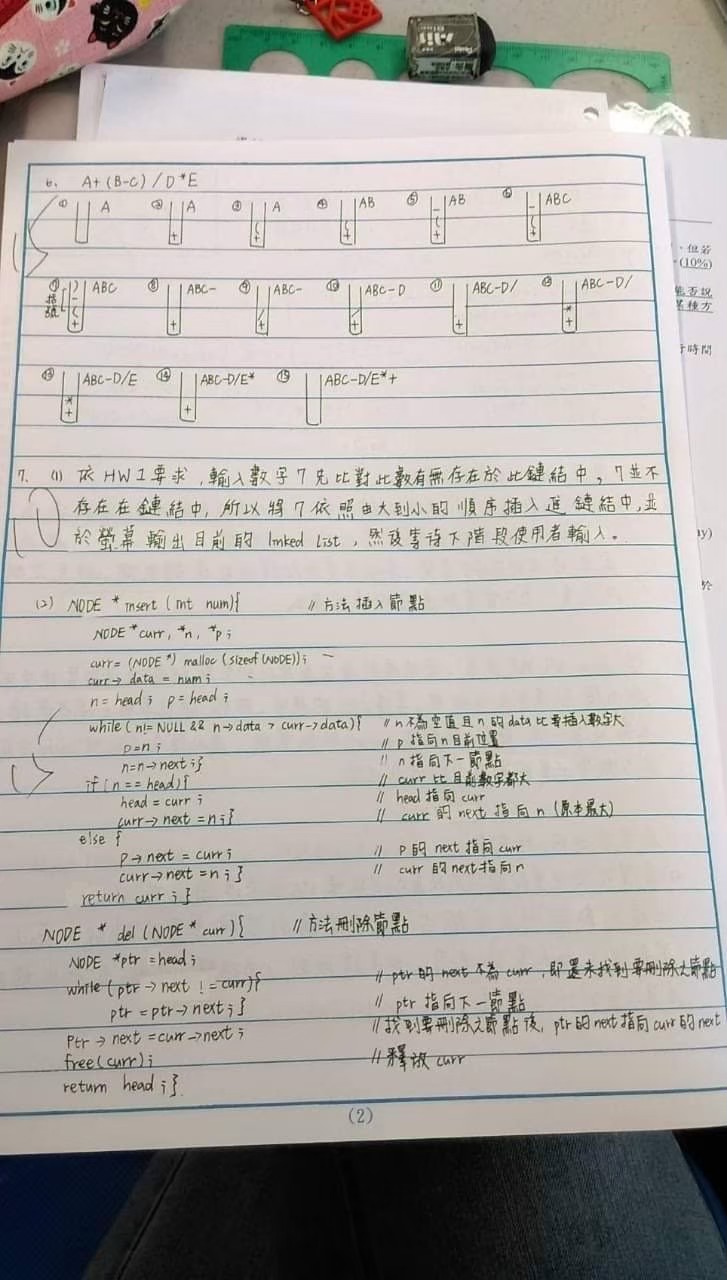 6. A+(B-C)/D*E
① A ② + A ③ ( + A ④ ( + AB ⑤ - ( + AB ⑥ - ( + ABC
⑦ 括號 ) - ( + ABC ⑧ + ABC- ⑨ / + ABC- ⑩ / + ABC-D ⑪ + ABC-D/ ⑫ * + ABC-D/
⑬ * + ABC-D/E ⑭ + ABC-D/E* ⑮ ABC-D/E*+
7. (1) 依HW1要求,輸入數字7先比對此數有無存在於此鏈結中,7並不
存在在鏈結中,所以將7依照由大到小的順序插入進鏈結中,並
於螢幕輸出目前的linked list,然後等待下階段使用者輸入。
(2) NODE *insert(int num){ //方法插入節點
NODE *curr, *n, *p;
curr=(NODE *) malloc (sizeof(NODE));
curr→data = num;
n=head; p=head;
while(n!=NULL && n→data > curr→data){ //n不為空值且n的data比要插入數字大
p=n; //p指向n目前位置
n=n→next;} //n指向下一節點
if(n==head){ //curr比目前數字都大
head=curr; //head指向curr
curr→next=n;} //curr的next指向n(原本最大)
else {
p→next=curr; //p的next指向curr
curr→next=n;} //curr的next指向n
return curr;}
NODE * del(NODE* curr){ //方法刪除節點
NODE *ptr=head;
while(ptr→next!=curr){ //ptr的next不為curr,即還未找到要刪除之節點
ptr=ptr→next;} //ptr指向下一節點
ptr→next=curr→next; //找到要刪除之節點後,ptr的next指向curr的next
free(curr); //釋放curr
return head;}
(2)
,但若
(10%)
能否說
某種方
行時間